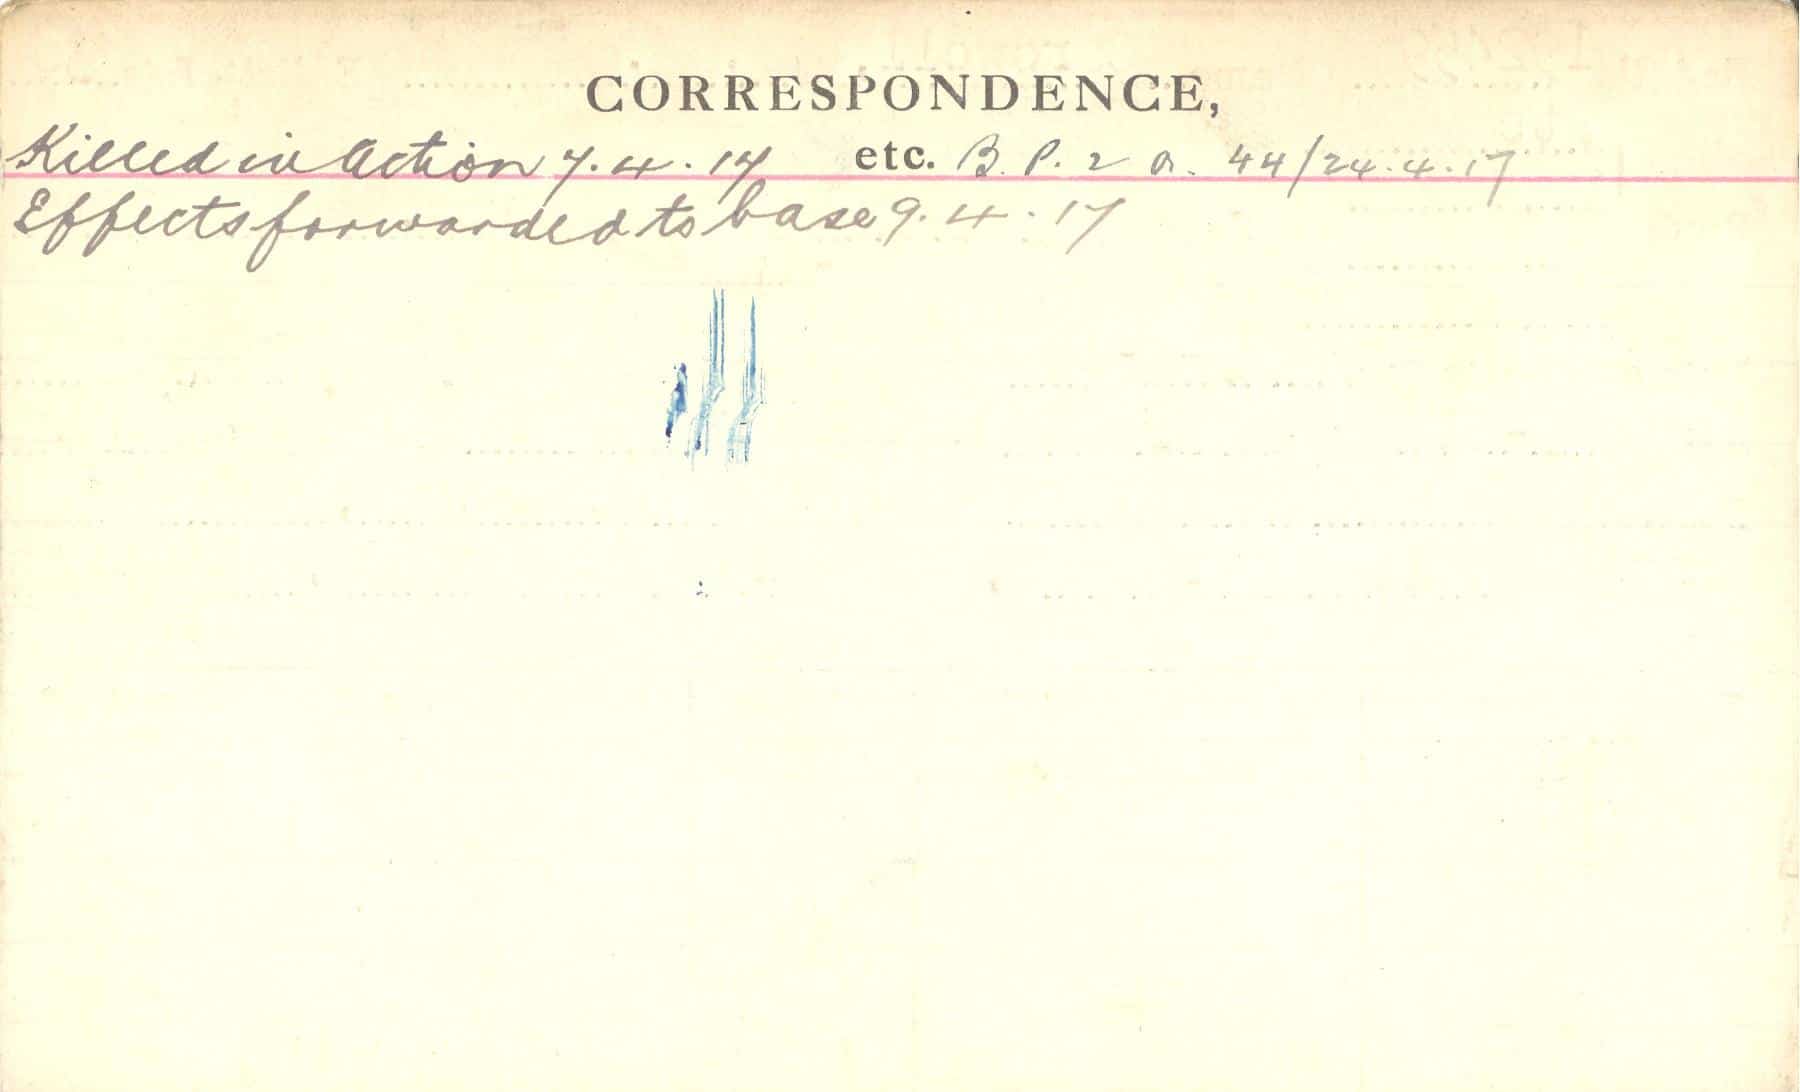 CORRESPONDENCE,
Killed in Action 7.4.17 etc. B.P. 2 a. 44/24.4.17
Effects forwarded to base 9.4.17